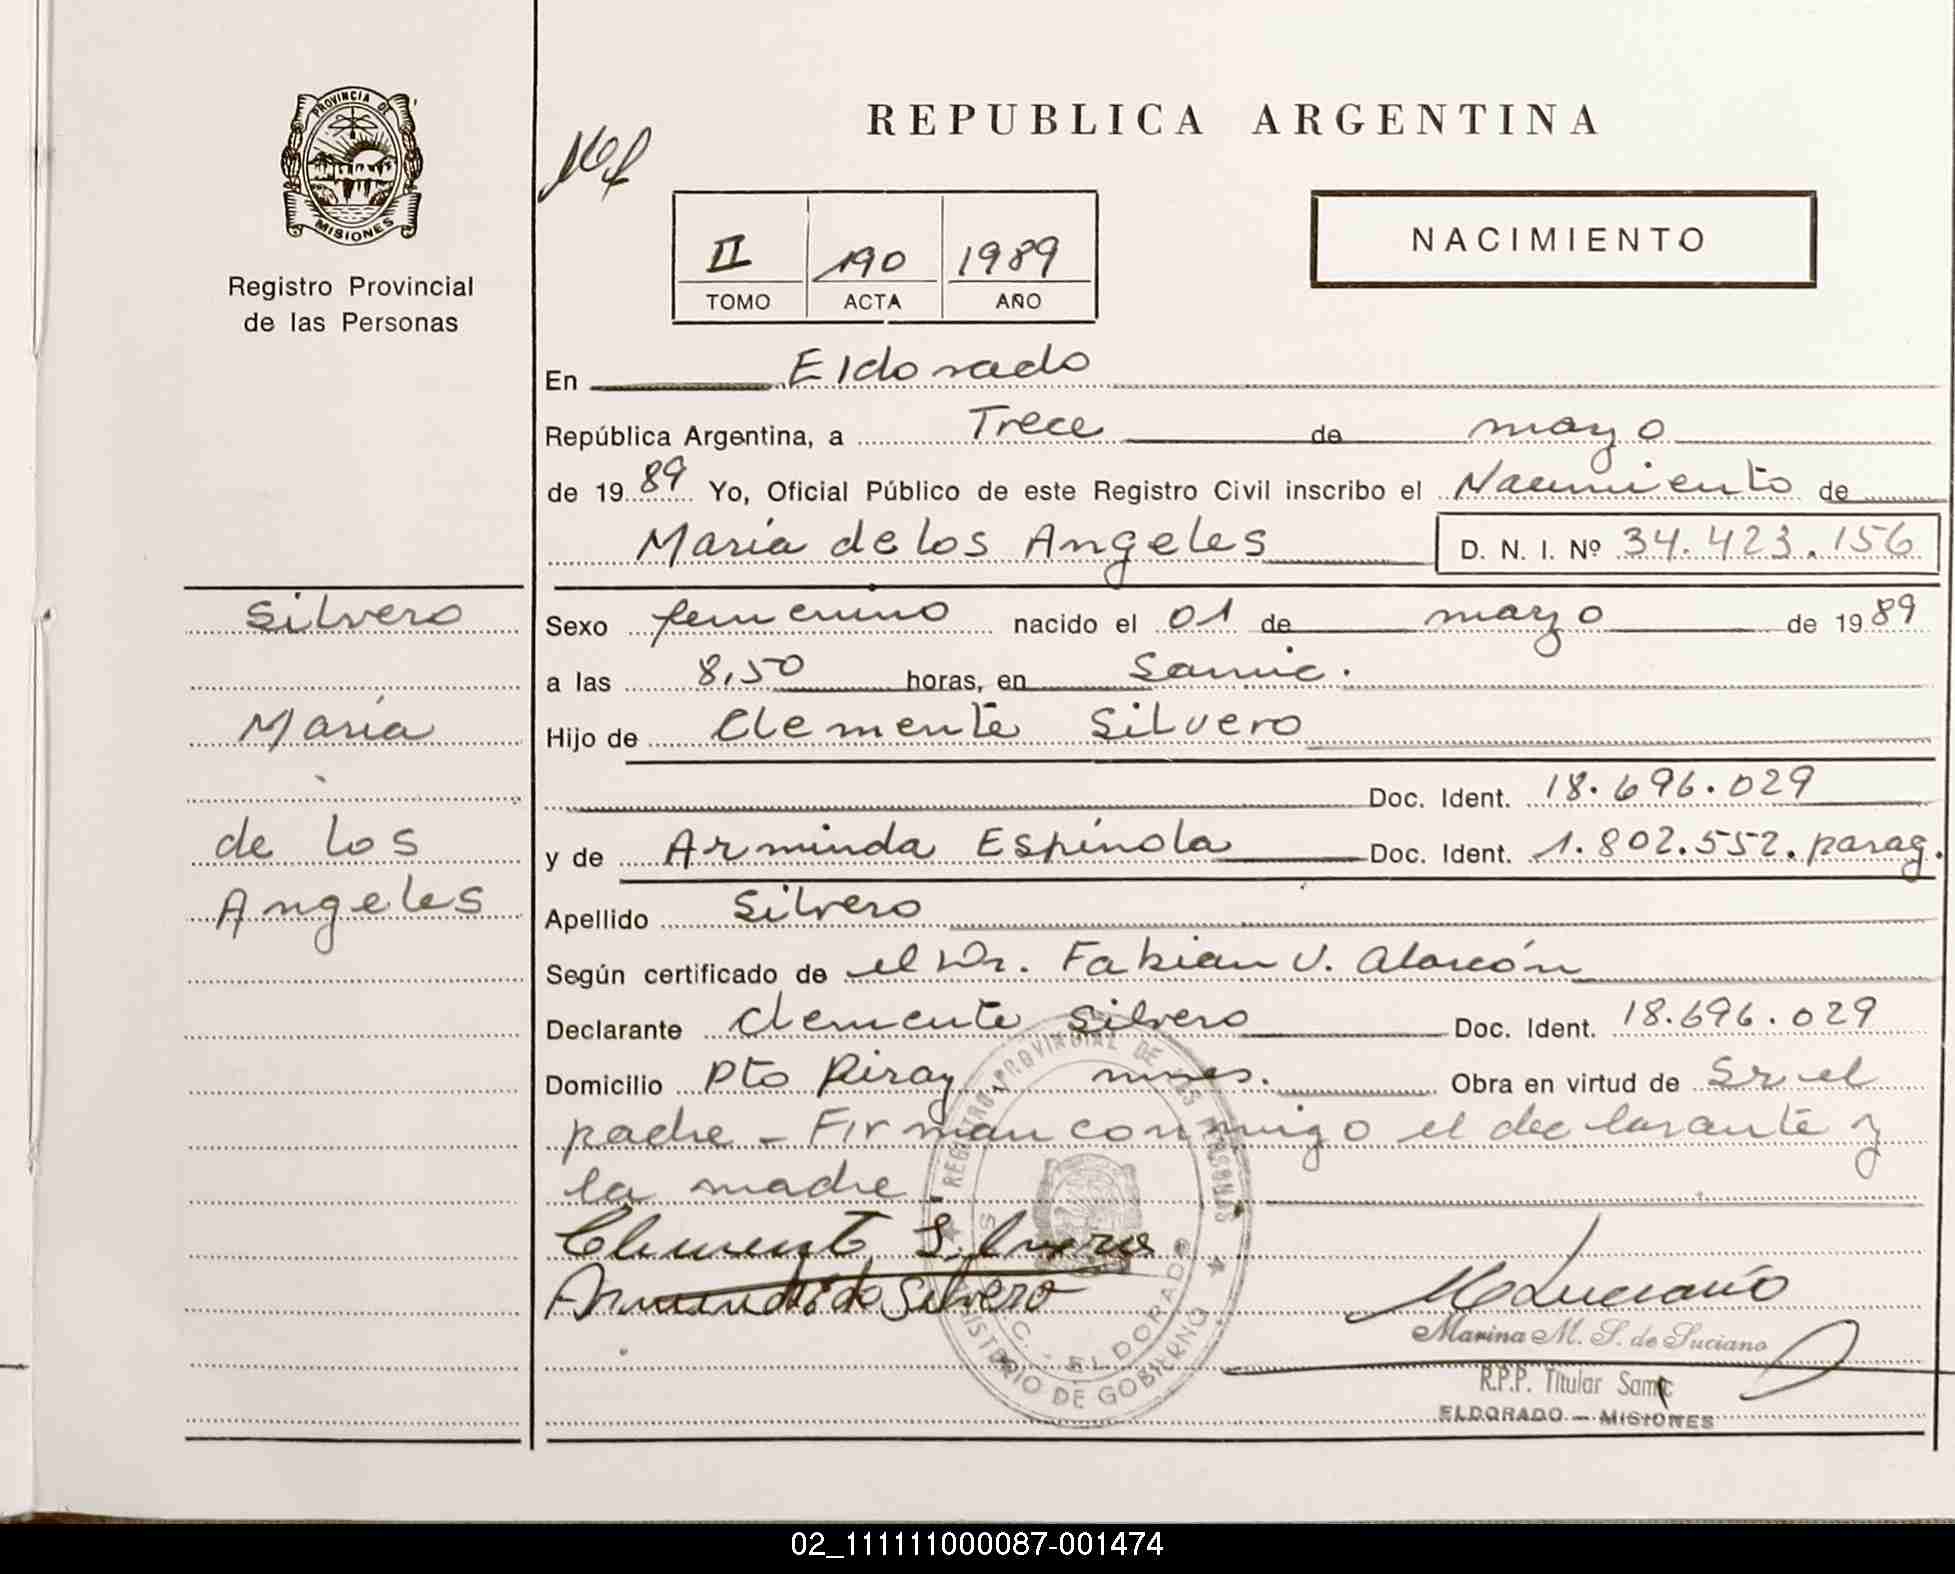 PROVINCIA DE
MISIONES
Registro Provincial
de las Personas
REPUBLICA ARGENTINA
NACIMIENTO
II 190 1989
TOMO ACTA AÑO
En Eldorado
República Argentina, a Trece de mayo
de 1989 Yo, Oficial Público de este Registro Civil inscribo el Nacimiento de
María de los Angeles D. N. I. Nº 34.423.156
Silvero
María
de los
Angeles
Sexo femenino nacido el 01 de marzo de 1989
a las 8,50 horas, en Samic.
Hijo de Clemente Silvero
Doc. Ident. 18.696.029
y de Arminda Espínola Doc. Ident. 1.802.552. parag.
Apellido Silvero
Según certificado de el Dr. Fabian V. Alarcón
Declarante Clemente Silvero Doc. Ident. 18.696.029
Domicilio Pto Piray mnes. Obra en virtud de Sr el
padre - Firman conmigo el declarante y
la madre.
Clemente Silvero
de Silvero
Luciano
Marina M. S. de Luciano
R.P.P. Titular Samic
ELDORADO - MISIONES
REGISTRO PROVINCIAL DE LAS PERSONAS
ELDORADO
MINISTERIO DE GOBIERNO
02_111111000087-001474